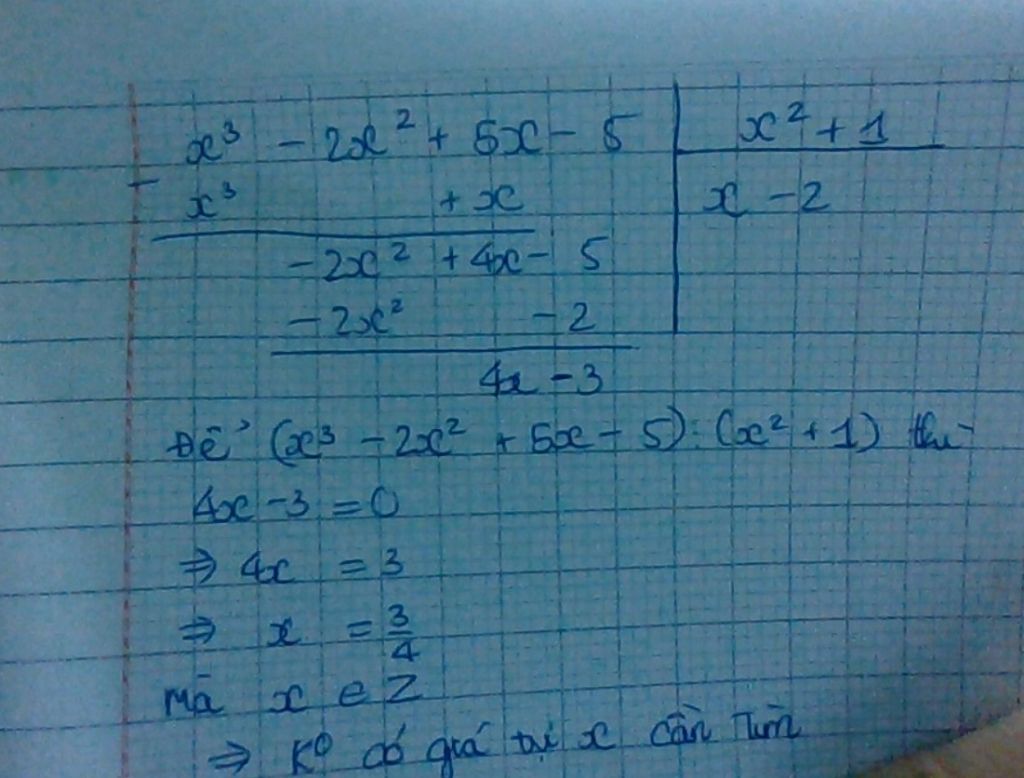 x³ - 2x² + 5x - 5 | x² + 1
- x³ + x | x - 2
- 2x² + 4x - 5
- 2x² - 2
4x - 3
Để (x³ - 2x² + 5x - 5) : (x² + 1) thì
4x - 3 = 0
⇒ 4x = 3
⇒ x = 3/4
mà x ∈ Z
⇒ K⁰ có giá trị x cần tìm